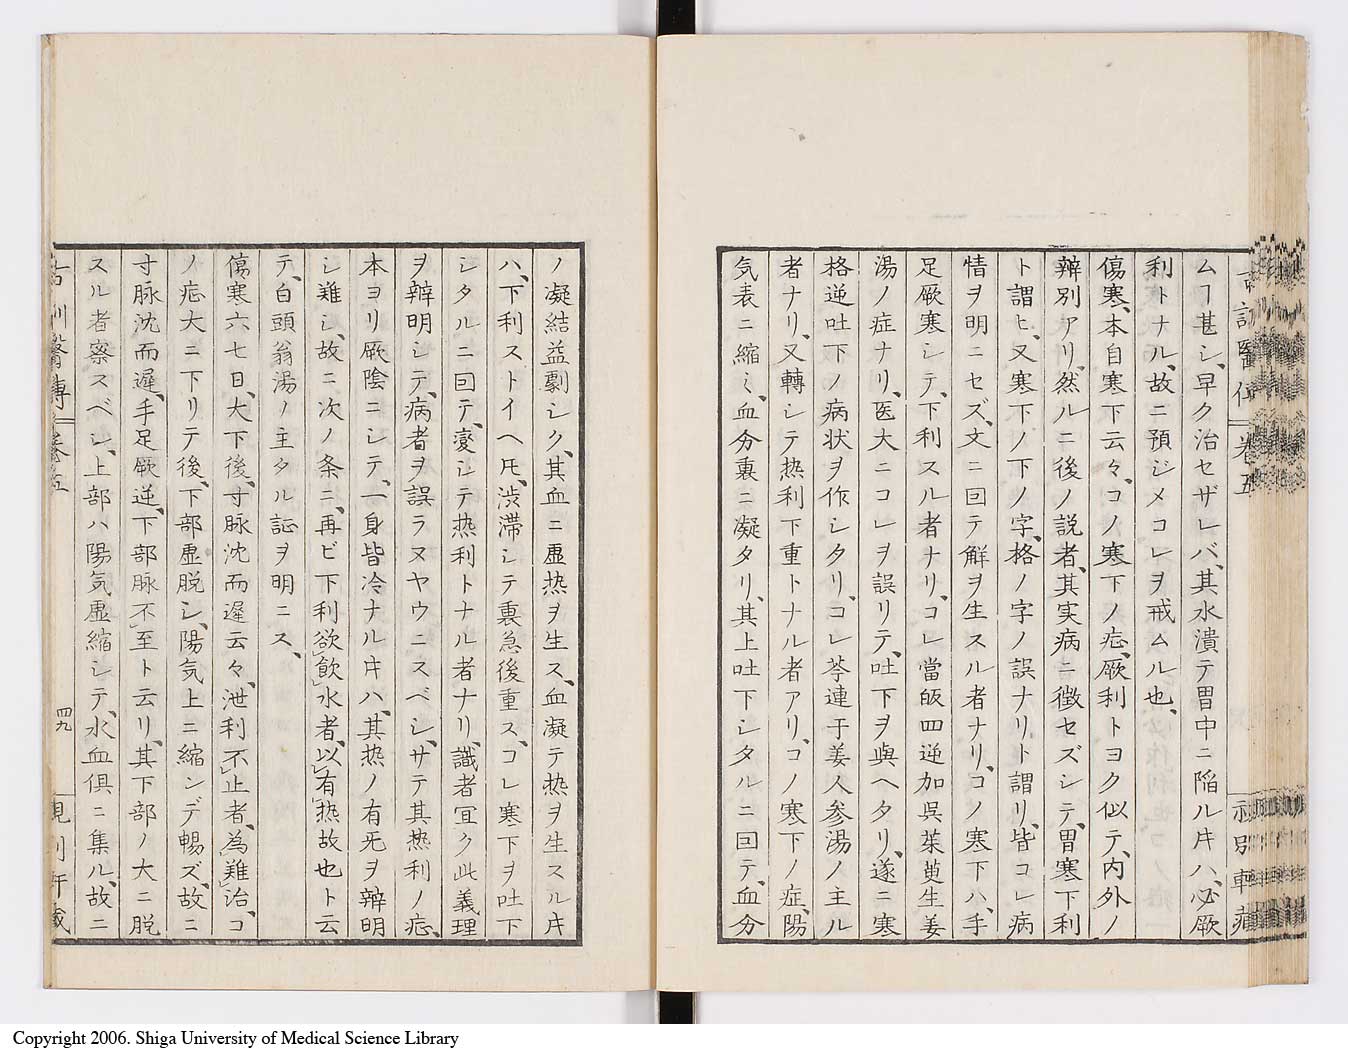 ムヿ甚シ、早ク治セザレバ、其水潰テ胃中ニ陥ルㇵ、必厥
利トナル、故ニ預ジメコレヲ戒ムル也、
傷寒、本自寒下云々、コノ寒下ノ症、厥利トヨク似テ、内外ノ
辨別アリ、然ルニ後ノ説者、其実病ニ徴セズシテ、胃寒下利
ト謂ヒ、又寒下ノ下ノ字、格ノ字ノ誤ナリト謂リ、皆コレ病
情ヲ明ニセズ、文ニ回テ解ヲ生スル者ナリ、コノ寒下ハ、手
足厥寒シテ、下利スル者ナリ、コレ當皈四逆加呉茱萸生姜
湯ノ症ナリ、医大ニコレヲ誤リテ、吐下ヲ與ヘタリ、遂ニ寒
格逆吐下ノ病状ヲ作シタリ、コレ芩連于姜人参湯ノ主ル
者ナリ、又轉シテ热利下重トナル者アリ、コノ寒下ノ症、陽
気表ニ縮ミ、血分裏ニ凝タリ、其上吐下シタルニ回テ、血分
ノ凝結益劇シク、其血ニ虚热ヲ生ス、血凝テ热ヲ生スル𪜈
ハ、下利ストイヘ𪜈、渋滞シテ裏急後重ス、コレ寒下ヲ吐下
シタルニ回テ、変シテ热利トナル者ナリ、識者冝ク此義理
ヲ辨明シテ、病者ヲ誤ラヌヤウニスベシ、サテ其热利ノ症、
本ヨリ厥陰ニシテ、一身皆冷ナル𪜈ハ、其热ノ有旡ヲ辨明
シ難シ、故ニ次ノ条ニ、再ビ下利欲飲水者、以有热故也ト云
テ、白頭翁湯ノ主タル証ヲ明ニス、
傷寒六七日、大下後、寸脉沈而遅云々、泄利不止者、為難治、コ
ノ症大ニ下リテ後、下部虚脱シ、陽気上ニ縮ンデ暢ズ、故ニ
寸脉沈而遅、手足厥逆、下部脉不至ト云リ、其下部ノ大ニ脱
スル者察スベシ、上部ハ陽気虚縮シテ、水血倶ニ集ル、故ニ
古訓醫傳
巻五
四九
Copyright 2006. Shiga University of Medical Science Library